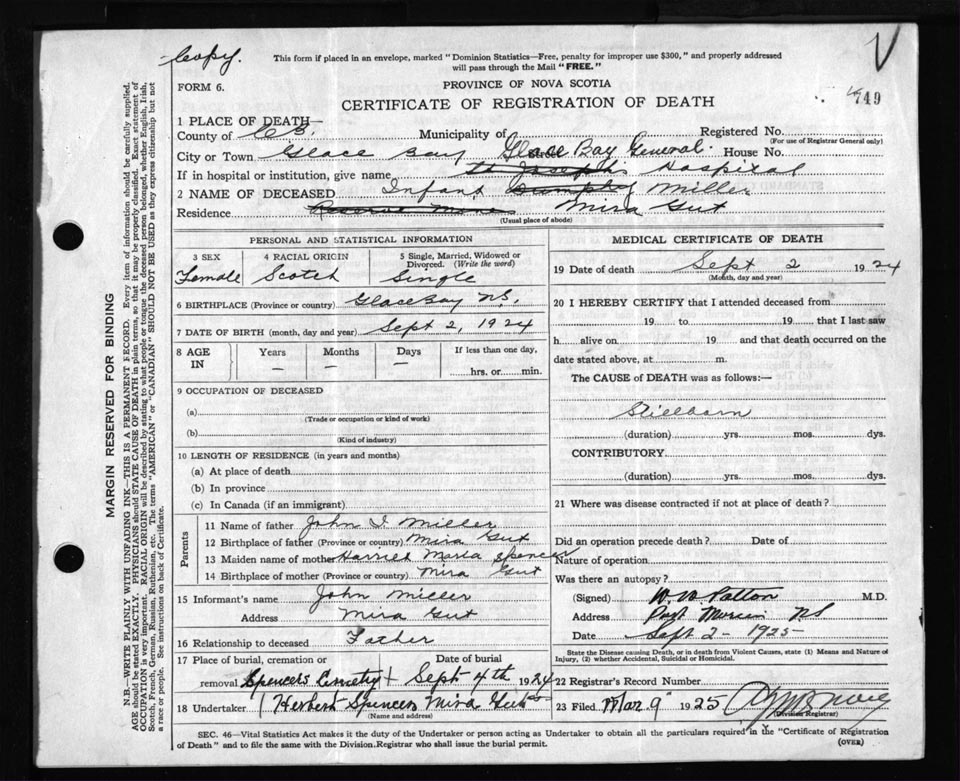 Copy.
This form if placed in an envelope, marked "Dominion Statistics—Free, penalty for improper use $300," and properly addressed
will pass through the Mail "FREE."
FORM 6.
PROVINCE OF NOVA SCOTIA
CERTIFICATE OF REGISTRATION OF DEATH
749
1 PLACE OF DEATH—
County of C.B. Municipality of Registered No.
(For use of Registrar General only)
City or Town Glace Bay Street Glace Bay General House No.
If in hospital or institution, give name St Joseph's Hospital
2 NAME OF DECEASED Infant Miller
Residence Reserve Mines Mira Gut
(Usual place of abode)
PERSONAL AND STATISTICAL INFORMATION
3 SEX 4 RACIAL ORIGIN 5 Single, Married, Widowed or
Divorced. (Write the word)
Female Scotch Single
6 BIRTHPLACE (Province or country) Glace Bay N.S.
7 DATE OF BIRTH (month, day and year) Sept 2, 1924
8 AGE IN Years Months Days If less than one day,
— — — hrs. or min.
9 OCCUPATION OF DECEASED
(a)
(Trade or occupation or kind of work)
(b)
(Kind of industry)
10 LENGTH OF RESIDENCE (in years and months)
(a) At place of death
(b) In province
(c) In Canada (if an immigrant)
Parents
11 Name of father John I Miller
12 Birthplace of father (Province or country) Mira Gut
13 Maiden name of mother Harriet Marla Spencer
14 Birthplace of mother (Province or country) Mira Gut
15 Informant's name John Miller
Address Mira Gut
16 Relationship to deceased Father
17 Place of burial, cremation or Date of burial
removal Spencers Cemetry Sept 4th 1924
18 Undertaker Herbert Spencer Mira Gut
(Name and address)
MEDICAL CERTIFICATE OF DEATH
19 Date of death Sept 2 1924
(Month, day and year)
20 I HEREBY CERTIFY that I attended deceased from
19 to 19 that I last saw
h alive on 19 and that death occurred on the
date stated above, at m.
The CAUSE of DEATH was as follows:—
Stillborn
(duration) yrs. mos. dys.
CONTRIBUTORY
(duration) yrs. mos. dys.
21 Where was disease contracted if not at place of death?
Did an operation precede death? Date of
Nature of operation
Was there an autopsy?
(Signed) W W Patton M.D.
Address Port Morien NS
Date Sept 2 - 1925
State the Disease causing Death, or in death from Violent Causes, state (1) Means and Nature of
Injury, (2) whether Accidental, Suicidal or Homicidal.
22 Registrar's Record Number
23 Filed Mar 9 1925
(Division Registrar)
SEC. 46—Vital Statistics Act makes it the duty of the Undertaker or person acting as Undertaker to obtain all the particulars required in the "Certificate of Registration
of Death" and to file the same with the Division Registrar who shall issue the burial permit.
(OVER)
MARGIN RESERVED FOR BINDING
N.B.—WRITE PLAINLY WITH UNFADING INK—THIS IS A PERMANENT RECORD. Every item of information should be carefully supplied.
AGE should be stated EXACTLY. PHYSICIANS should STATE CAUSE OF DEATH in plain terms, so that it may be properly classified. Exact statement of
OCCUPATION is very important. RACIAL ORIGIN will be described by stating to what people or tongue the deceased person belonged, whether English, Irish,
Scotch, French, German, Russian, Ruthenian, etc. The terms "AMERICAN" or "CANADIAN" SHOULD NOT BE USED as they express citizenship but not
a race or people. See instructions on back of Certificate.